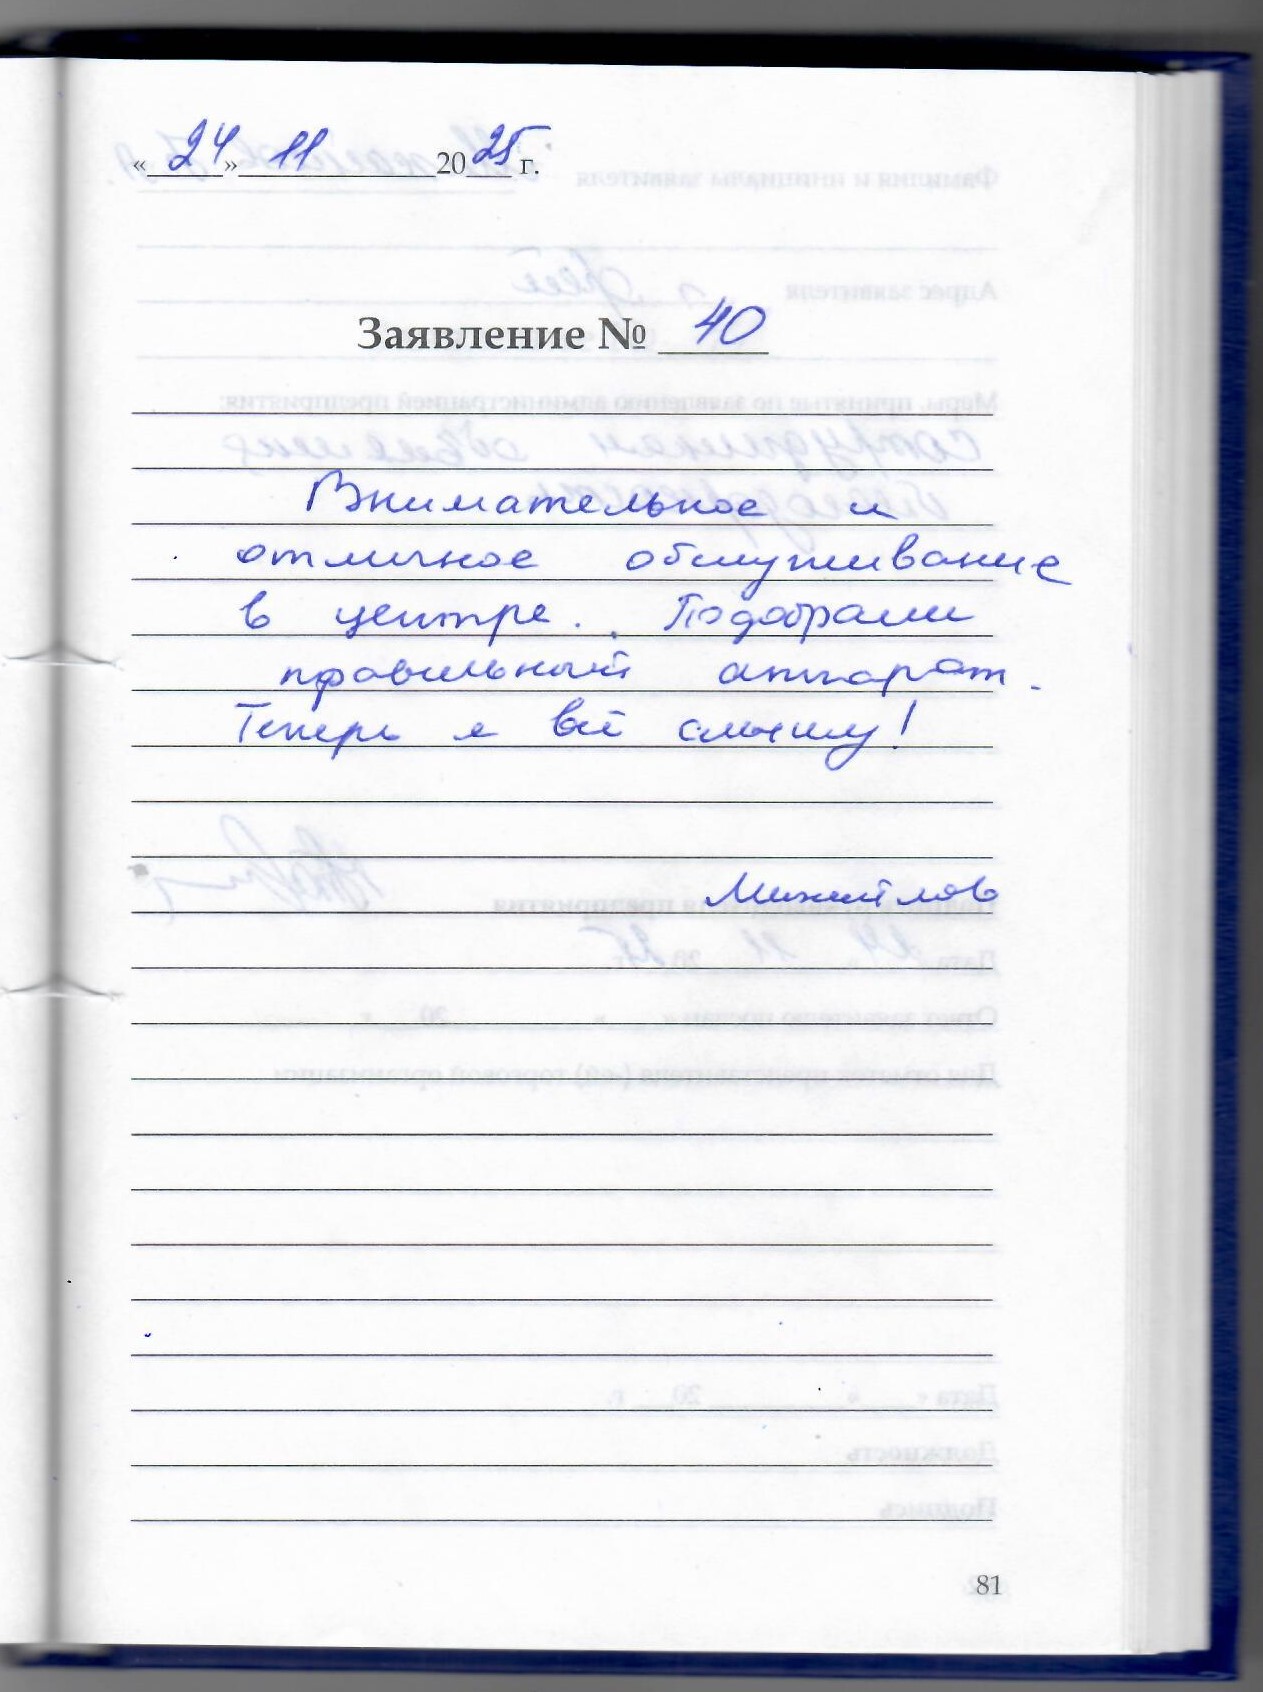 «24» 11 2025 г.
Заявление № 40
Внимательное и
отличное обслуживание
в центре. Подобрали
правильный аппарат.
Теперь я всё слышу!
Михайлов
81